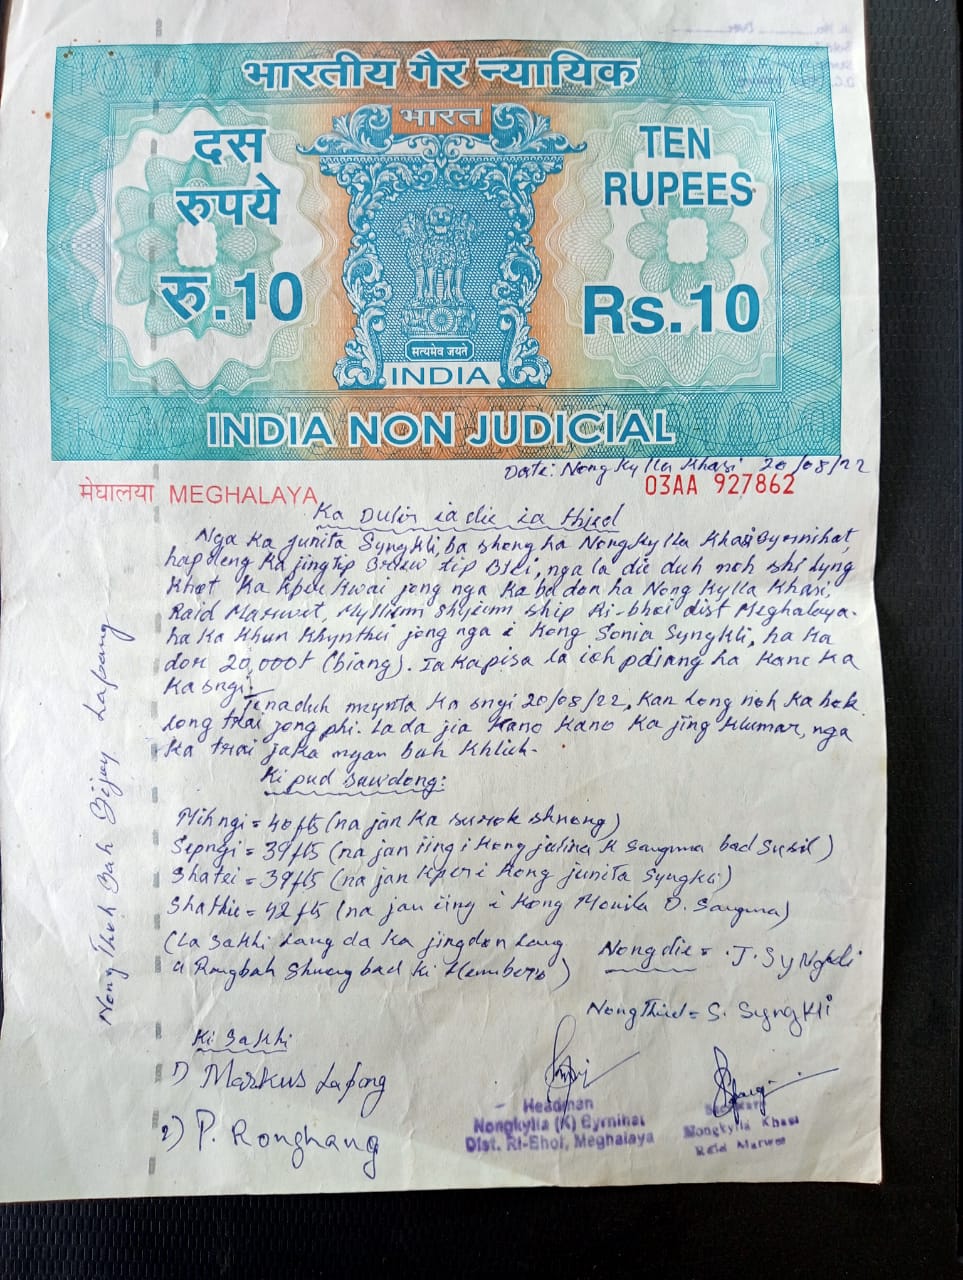 भारतीय गैर न्यायिक
भारत
दस
रुपये
रु.10
TEN
RUPEES
Rs.10
सत्यमेव जयते
INDIA
INDIA NON JUDICIAL
Date: Nongkylla Khasi 20/08/22
मेघालया MEGHALAYA
03AA 927862
Ka Dulir ia die ia thied
Nga Ka Junita Syngkli, ba shong ha Nongkylla Khasi Byrnihat,
hapdeng Ka jingtip Briew tip Blei, nga la die duh noh shi lyng
Khot Ka Kper Kwai jong nga Ka ba don ha Nongkylla Khasi,
Raid Marwet, Mylliem Shyiem ship Ri-bhoi dist Meghalaya.
ha Ka Khun Khynthei jong nga i Kong Sonia Syngkli, ha Ka
dor 20,000t (biang). Ia Ka pisa la ioh pdiang ha Kane Ka
Ka sngi.
Tenaduh mynta Ka sngi 20/08/22, Kan long noh Ka hok
long trai jong phi. Lada jia Kano Kano Ka jing Khlumar, nga
Ka trai jaka ngan bah Khlieh.
Ki pud sawdong:
Mihngi = 40fts (na jan Ka surok shnong)
Sepngi = 39fts (na jan iing i Kong Julina K Sangma bad Susil)
Shatei = 39fts (na jan Kper i Kong Junita Syngkli)
Shathie = 42fts (na jan iing i Kong Monila D. Sangma)
(La Sakhi Lang da Ka jingdon Lang
u Rangbah Shnong bad Ki Members)
Nongdie = J. Syngkli
Nongthied = S. Syngkli
Nong Thoh Bah Bijay Lapang
Ki Sakhi
1) Markus Lapong
2) P. Ronghang
Headman
Nongkylla (K) Byrnihat
Dist. Ri-Bhoi, Meghalaya
Secretary
Nongkylla Khasi
Raid Marwet